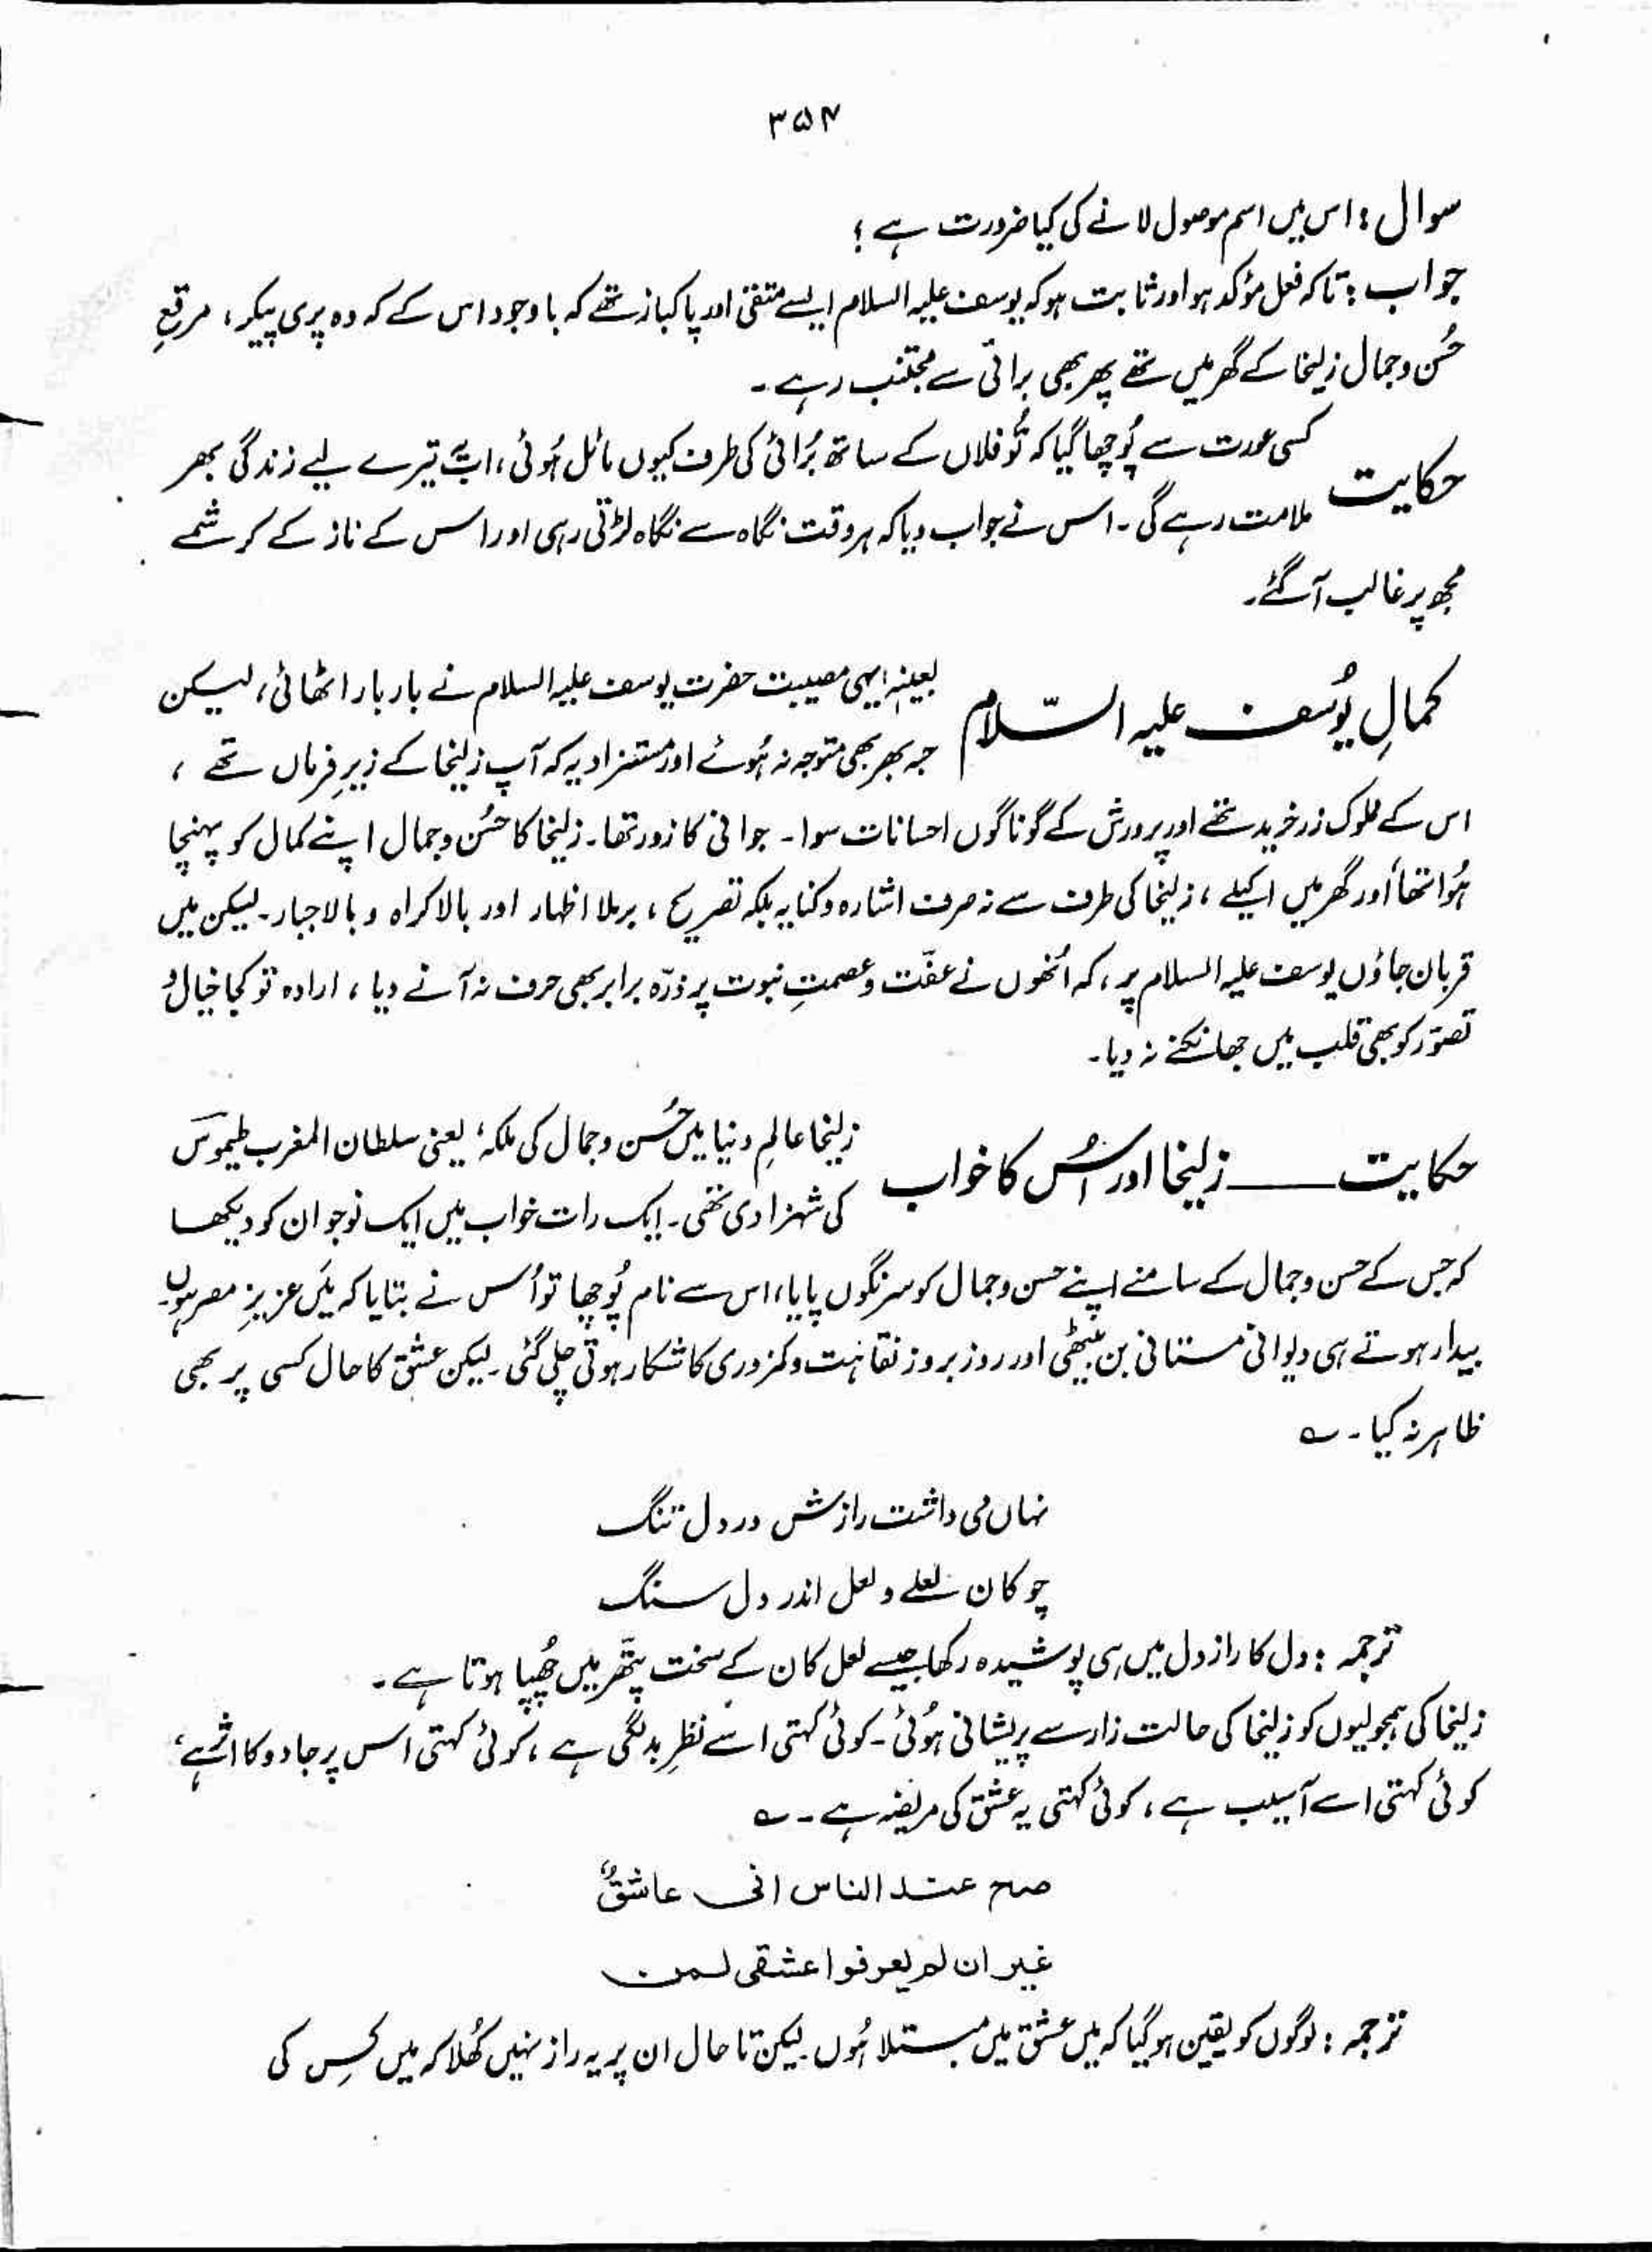 ۳۵۴
سوال : اس میں اسم موصول لانے کی کیا ضرورت ہے ؟
جواب : تاکہ فعل مؤکد ہو اور ثابت ہو کہ یوسف علیہ السلام ایسے متقی اور پاکباز تھے کہ باوجود اس کے کہ وہ پری پیکر ، مرقعِ
حُسن و جمال زلیخا کے گھر میں تھے پھر بھی برائی سے مجتنب رہے ۔
حکایت
کسی عورت سے پُوچھا گیا کہ تُو فلاں کے ساتھ بُرائی کی طرف کیوں مائل ہُوئی ، اب تیرے لیے زندگی بھر
ملامت رہے گی ۔ اس نے جواب دیا کہ ہر وقت نگاہ سے نگاہ لڑتی رہی اور اس کے ناز کے کرشمے
مجھ پر غالب آ گئے ۔
کمالِ یُوسف علیہ السّلام
بعینہٖ ایہی مصیبت حضرت یوسف علیہ السلام نے بار بار اٹھائی ، لیکن
جَو بھر بھی متوجہ نہ ہُوئے اور مستزاد یہ کہ آپ زلیخا کے زیرِ فرماں تھے ،
اس کے مملوک زر خرید تھے اور پرورش کے گوناگوں احسانات سوا ۔ جوانی کا زور تھا ۔ زلیخا کا حُسن و جمال اپنے کمال کو پہنچا
ہُوا تھا اور گھر میں اکیلے ، زلیخا کی طرف سے نہ صرف اشارہ و کنایہ بلکہ تصریح ، برملا اظہار اور بالاکراہ و بالاجبار ۔ لیکن میں
قربان جاؤں یوسف علیہ السلام پر ، کہ اُنھوں نے عفّت و عصمتِ نبوت پر ذرّہ برابر بھی حرف نہ آنے دیا ، ارادہ تو کجا خیال و
تصوّر کو بھی قلب میں جھانکنے نہ دیا ۔
حکایت ـــــ زلیخا اور اُس کا خواب
زلیخا عالمِ دنیا میں حُسن و جمال کی ملکہ ، یعنی سلطان المغرب طیموس
کی شہزادی تھی ۔ ایک رات خواب میں ایک نوجوان کو دیکھا
کہ جس کے حسن و جمال کے سامنے اپنے حسن و جمال کو سرنگوں پایا ، اس سے نام پُوچھا تو اُس نے بتایا کہ میَں عزیزِ مصر ہوں ۔
بیدار ہوتے ہی دیوانی مستانی بن بیٹھی اور روز بروز نقاہت و کمزوری کا شکار ہوتی چلی گئی ۔ لیکن عشق کا حال کسی پر بھی
ظاہر نہ کیا ۔ ؎
نہاں می داشت رازش در دل تنگ
چو کان لعلے و لعل اندر دل سنگ
ترجمہ : دل کا راز دل میں ہی پوشیدہ رکھا جیسے لعل کان کے سخت پتّھر میں چُھپا ہوتا ہے ۔
زلیخا کی ہمجولیوں کو زلیخا کی حالت زار سے پریشانی ہُوئی ۔ کوئی کہتی اسے نظرِ بد لگی ہے ، کوئی کہتی اس پر جادو کا اثر ہے ،
کوئی کہتی اسے آسیب ہے ، کوئی کہتی یہ عشق کی مریضہ ہے ۔ ؎
صح عند الناس انی عاشقٌ
غیر ان لم یعرفوا عشقی لمن
ترجمہ : لوگوں کو یقین ہو گیا کہ میں عشق میں مبتلا ہُوں لیکن تا حال ان پر یہ راز نہیں کُھلا کہ میں کِس کی